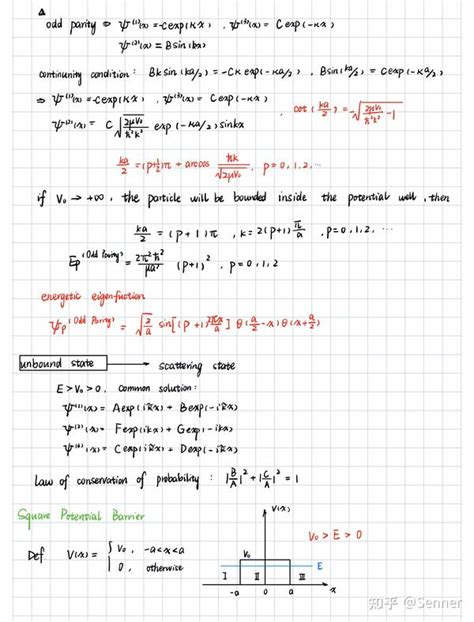 odd parity ⇒ ψ⁽¹⁾(x) = -C exp(κx) , ψ⁽³⁾(x) = C exp(-κx)
ψ⁽²⁾(x) = B sin(kx)
continuity condition : Bk sin(ka/2) = -Cκ exp(-κa/2) , B sin(ka/2) = C exp(-κa/2)
⇒ ψ⁽¹⁾(x) = -C exp(κx) , ψ⁽³⁾(x) = C exp(-κx)
cot(ka/2) = -√(2μV₀/ħ²k² - 1)
ψ⁽²⁾(x) = C √(2μV₀/ħ²k²) exp(-κa/2) sin kx
ka/2 = (p+½)π + arccos ħk/√(2μV₀) , p = 0, 1, 2, ⋯
if V₀ → +∞, the particle will be bounded inside the potential well, then
ka/2 = (p+1)π , k = 2(p+1)π/a , p = 0, 1, 2, ⋯
Ep⁽ᴼᵈᵈ ᴾᵃʳⁱⁿᵍ⁾ = 2π²ħ²/μa² (p+1)² , p = 0, 1, 2
energetic eigen-fuction
ψp⁽ᴼᵈᵈ ᴾᵃʳⁱⁿᵍ⁾ = √(2/a) sin[(p+1)2πx/a] θ(a/2-x) θ(x+a/2)
unbound state → scattering state
E > V₀ > 0 , common solution :
ψ⁽¹⁾(x) = A exp(ik̃x) + B exp(-ik̃x)
ψ⁽²⁾(x) = F exp(ikx) + G exp(-ikx)
ψ⁽³⁾(x) = C exp(ik̃x) + D exp(-ik̃x)
Law of conservation of probability : |B/A|² + |C/A|² = 1
Square Potential Barrier
V(x)
V₀ > E > 0
Def V(x) = { V₀ , -a<x<a
0 , otherwise
V₀
E
I II III
-a 0 a x
知乎 @Senner